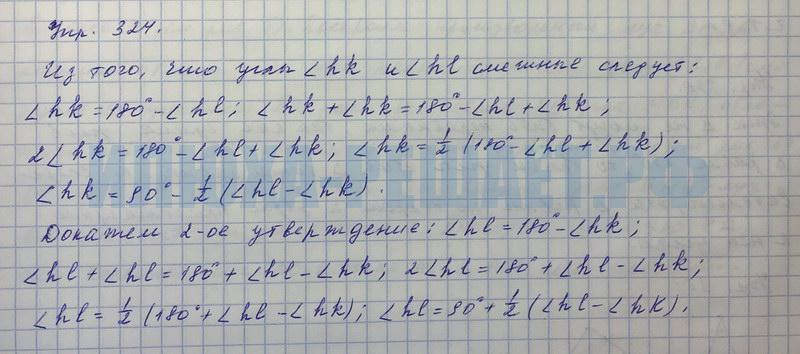 Упр. 324.
Из того, что углы ∠hk и ∠hl смежные следует:
∠hk = 180° - ∠hl; ∠hk + ∠hk = 180° - ∠hl + ∠hk;
2∠hk = 180° - ∠hl + ∠hk; ∠hk = 1/2 (180° - ∠hl + ∠hk);
∠hk = 90° - 1/2 (∠hl - ∠hk).
Докажем 2-ое утверждение: ∠hl = 180° - ∠hk;
∠hl + ∠hl = 180° + ∠hl - ∠hk; 2∠hl = 180° + ∠hl - ∠hk;
∠hl = 1/2 (180° + ∠hl - ∠hk); ∠hl = 90° + 1/2 (∠hl - ∠hk).